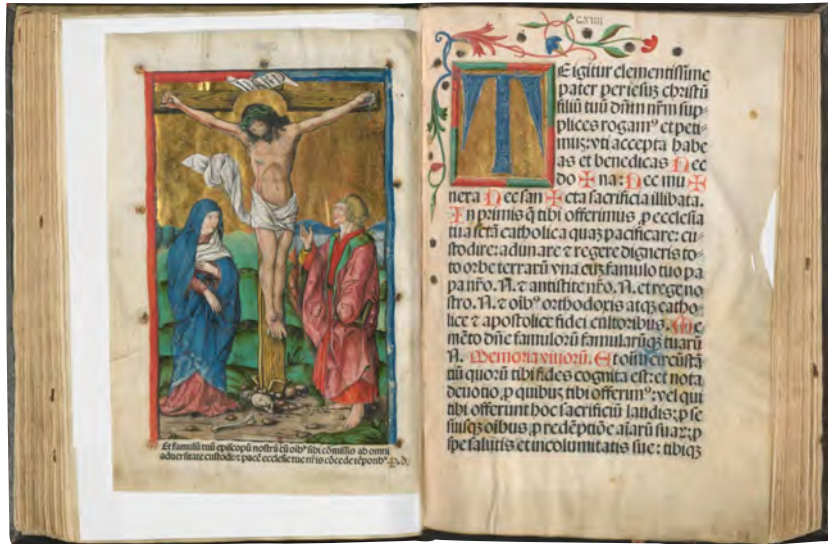 INRI
Et famulū tuū episcopū nostrū cū oibꝰ sibi cōmissis ab omni
aduersitate custodi: ⁊ pacē ecclesie tue nr̄is cōcede tēporibꝰ. P. D.
C.VIIII
TE igitur clementissime
pater per iesuȝ christū
filiū tuū dn̄m nr̄m sup-
plices rogamꝰ et peti-
mus: vti accepta habe
as et benedicas Hec
do ✠ na: Hec mu ✠
nera Hec san ✠ cta sacrificia illibata.
In primis q̄ tibi offerimus ꝓ ecclesia
tua sctā catholica quaȝ pacificare: cu-
stodire: adunare ⁊ regere digneris to-
to orbe terrarū vna cuȝ famulo tuo pa
pa nr̄o. N. ⁊ antistite nr̄o. N. et rege no
stro. N. ⁊ oibꝰ orthodoxis atqȝ catho-
lice ⁊ apostolice fidei cultoribus. Me
mēto dn̄e famulorū famularūqȝ tuarū
N. Memoria viuorū. Et oīm circūstā
tiū quorū tibi fides cognita est: et nota
deuotio, ꝓ quibus tibi offerimꝰ: vel qui
tibi offerunt hoc sacrificiū laudis: ꝓ se
suisqȝ oibus ꝓ redēptiōe aīarū suaꝝ: ꝓ
spe salutis et incolumitatis sue: tibiqȝ